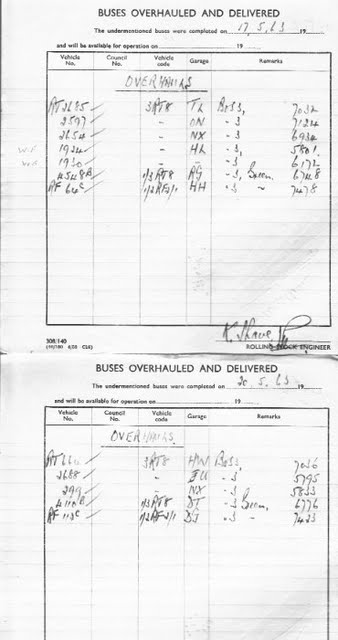 BUSES OVERHAULED AND DELIVERED
The undermentioned buses were completed on 17.5.63 19
and will be available for operation on 19
Vehicle No. Council No. Vehicle code Garage Remarks
OVERHAULS
RT 2685 3RT8 TL Body, 7032
2597 - ON - 7124
2654 - NX - 6934
1924 - HL - 5801
1930 - - - 6172
4548 1/3 RT8 RG - 6748
RF 64C 1/2RF2/1 HH - 7478
308/140
ROLLING STOCK ENGINEER
BUSES OVERHAULED AND DELIVERED
The undermentioned buses were completed on 20.5.63 19
and will be available for operation on 19
Vehicle No. Council No. Vehicle code Garage Remarks
OVERHAULS
RT 3RT8 HW 7036
2688 - 5795
299 - NX - 5833
1/3 RT8 DT - 6776
RF 1/2RF2/1 - 7433